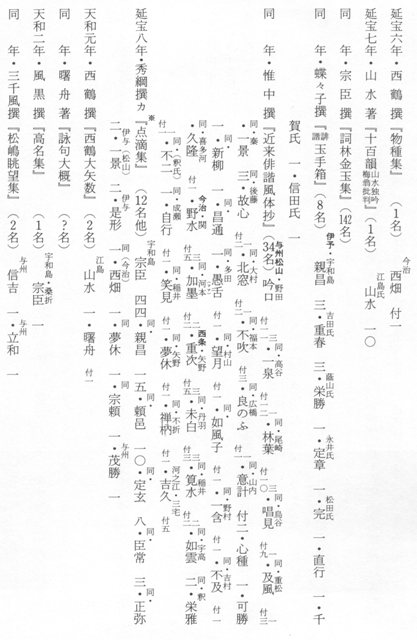 延宝六年・西鶴撰『物種集』(1名) 今治 西畑 付一
延宝七年・山水著『十百韻 山水独吟 梅翁批判』(1名) 江島氏 山水 一〇
同 年・宗臣撰『詞林金玉集』(142名)
同 年・蝶々子撰『俳諧玉手箱』(8名) 伊予・宇和島 親昌 三・吉田氏 重春 三・蔭山氏 栄勝 一・永井氏 定章 一・松田氏 完 一・直行 一・千
賀氏 一・信田氏 一
同 年・惟中撰『近来俳諧風体抄』(34名) 与州松山・野田 吟口 一・同・高谷 泉 一・同・尾崎 林葉 付一〇・同・島谷 唱見 付九・同・重松 及風 付三
同・秦 一景 三・同・後藤 故心 付二・同・大村 北窓 付一・同・福本 不吹 付三・同・広橋 良のふ 付一・同・山内 意計 付二・心種 一・可勝
一・新柳 一・昌通 一・同・多田 愚舌 付一・同・村山 望月 付一・如風子 付一・同・野村 一含 付一・同・吉村 不及 付一
同・喜多河 久隆 付一・今治・関 野水 付五・同・河本 加墨 付三・西条・矢野 重次 付五・同・丹羽 未白 付三・同・稲井 寛水 付二・同・宇高 如雲 二・同・釈 栄雅
付一・同(釈氏) 不二 一・同・成瀬 自行 付一・同・稲井 笑見 付一・同・矢野 夢休 付一・同・不折 禅柄 付一・河之江・三宅 吉久 付五
延宝八年・秀綱撰カ『点滴集』※ (12名他) 宇和島 宗臣 四四・同・親昌 一五・同・頼邑 一〇・同・定玄 八・同・臣常 三・同・正弥
二・伊予・松山 一景 二・伊予 是形 一・(同・今治) 西畑 一・同・夢休 一・同・宗頼 一・与州 茂勝 一
天和元年・西鶴撰『西鶴大矢数』(2名) 江島 山水 一・曙舟 付一
同 年・曙舟著『詠句大概』(?名)
天和二年・風黒撰『高名集』(1名) 宇和島・桑折 宗臣 一
同 年・三千風撰『松嶋眺望集』(2名) 与州 信吉 一・与州 立和 一